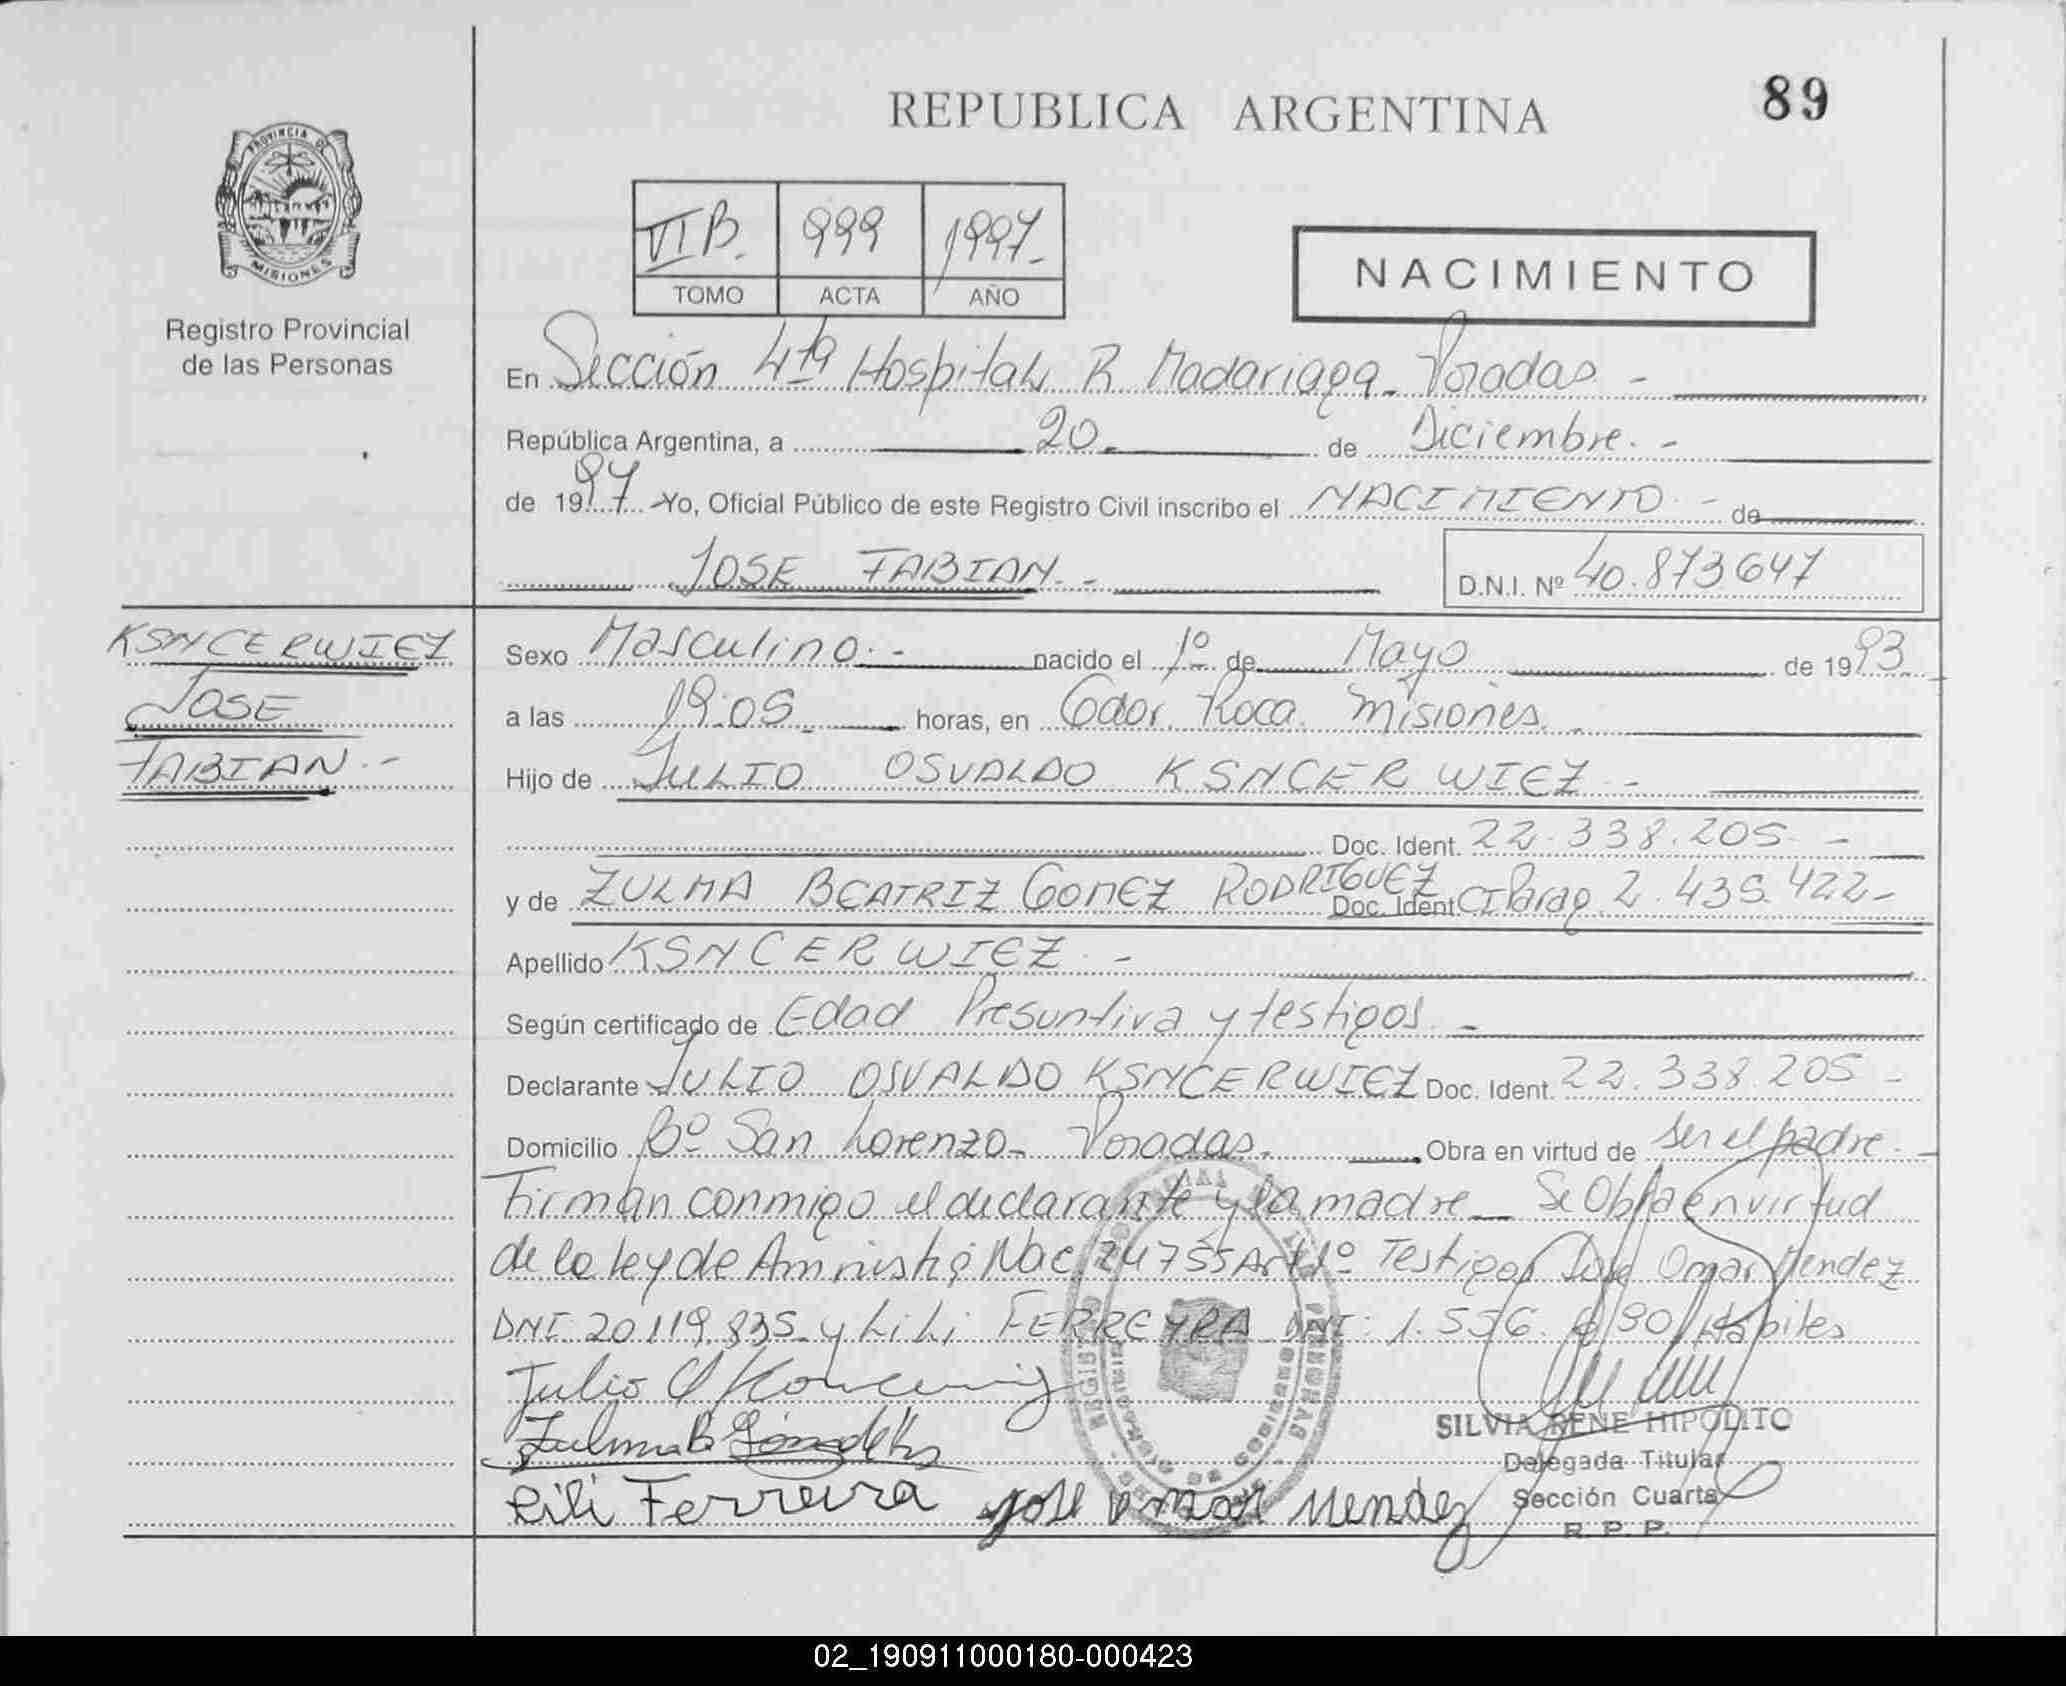 REPUBLICA ARGENTINA
89
PROVINCIA DE
MISIONES
Registro Provincial
de las Personas
VI B. 999 1997.-
TOMO ACTA AÑO
NACIMIENTO
En Sección 4ta Hospital R Madariaga - Posadas -
República Argentina, a 20 de Diciembre. -
de 1997 Yo, Oficial Público de este Registro Civil inscribo el NACIMIENTO - de
JOSE FABIAN. - D.N.I. Nº 40.873647
KSNCERWIEZ
JOSE
FABIAN. -
Sexo Masculino. - nacido el 1º de Mayo de 1993
a las 19:05 horas, en Gdor. Roca. Misiones. -
Hijo de JULIO OSVALDO KSNCERWIEZ -
Doc. Ident. 22.338.205. -
y de ZULMA BEATRIZ GOMEZ RODRIGUEZ Doc. Ident CI Parag 2.435.422 -
Apellido KSNCERWIEZ. -
Según certificado de Edad Presuntiva y testigos. -
Declarante JULIO OSVALDO KSNCERWIEZ Doc. Ident. 22.338.205 -
Domicilio Bº San Lorenzo - Posadas. Obra en virtud de ser el padre. -
Firman conmigo el declarante y la madre - Se Obra en virtud
de la ley de Amnistia Nac 24755 Art 1º Testigos José Omar Mendez
DNI 20119.835 y Lili FERREYRA DNI: 1.556. Hábiles
Julio O
Zulma B
Lili Ferreira Jose Omar Mendez
SILVIA RENE HIPOLITO
Delegada Titular
Sección Cuarta
R. P. P.
02_190911000180-000423